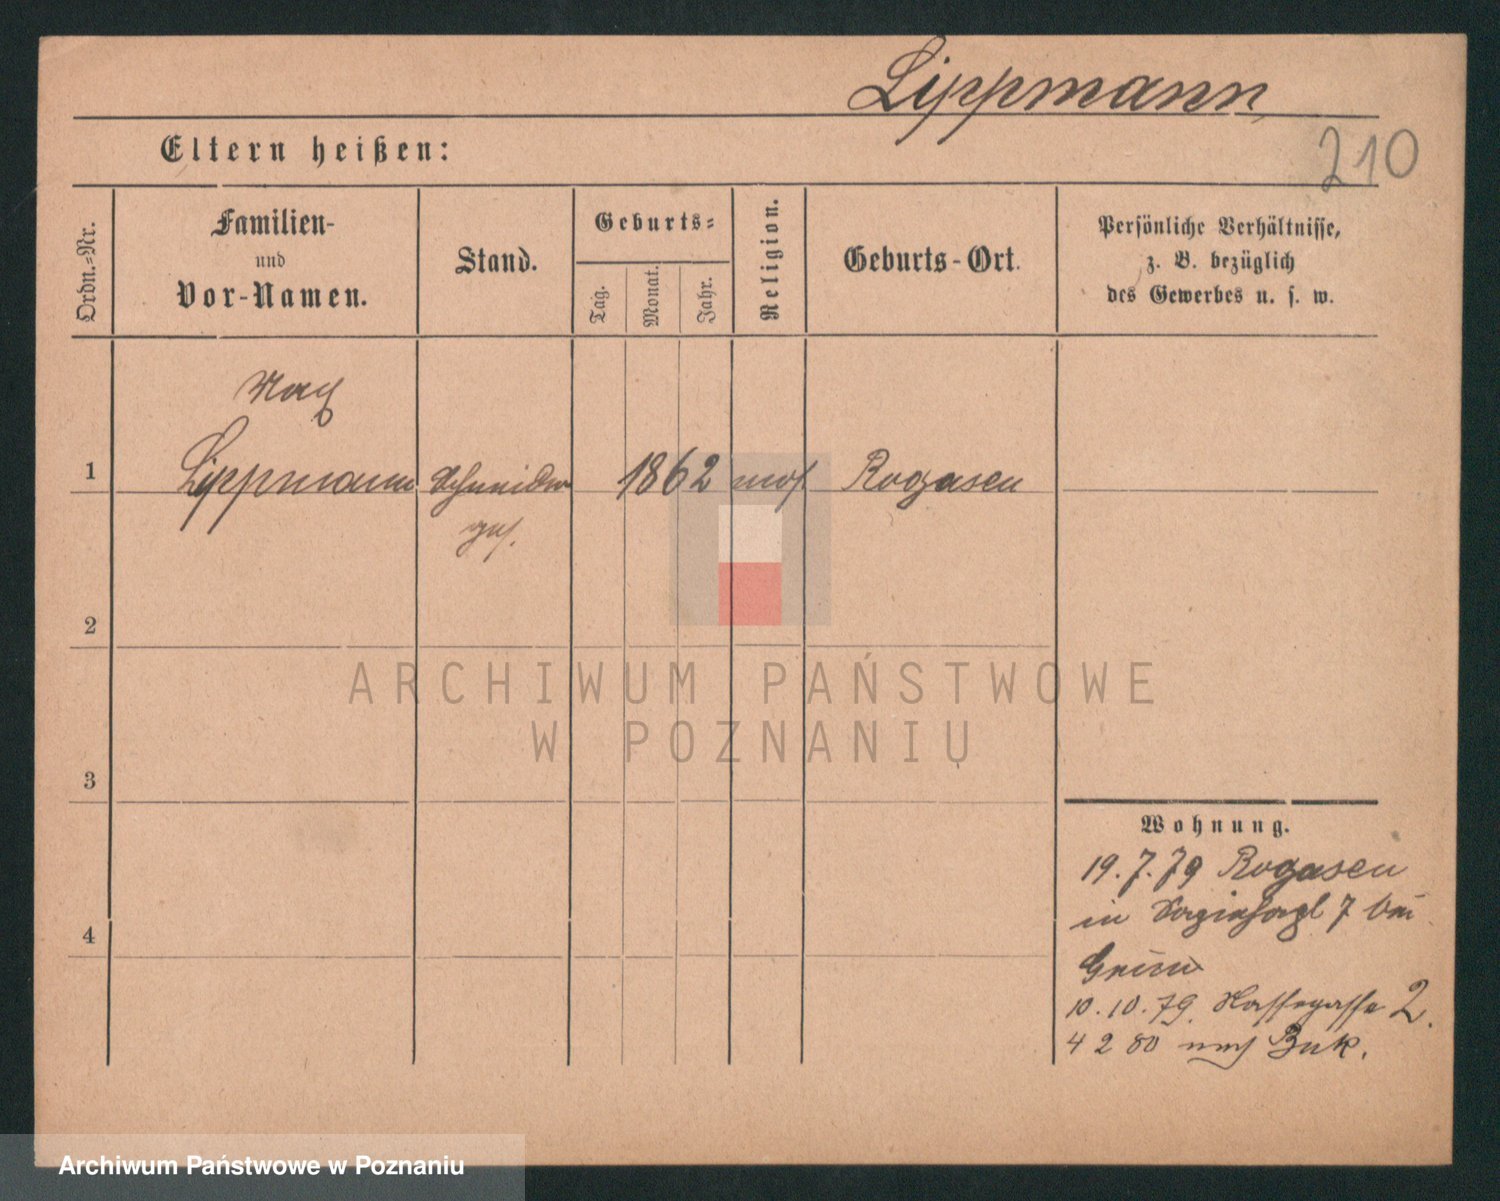 Lippmann
210
Eltern heißen:
Ordn.=Nr.
Familien-
und
Vor-Namen.
Stand.
Geburts=
Tag.
Monat.
Jahr.
Religion.
Geburts-Ort.
Persönliche Verhältnisse,
z. B. bezüglich
des Gewerbes u. s. w.
1
Lippmann
Schneider
1862
mos.
Rogasen
2
3
4
Wohnung.
19.7.79 Rogasen
in 7 bei
10.10.79. 2.
4 2 80 nach Buk.
ARCHIWUM PAŃSTWOWE
W POZNANIU
Archiwum Państwowe w Poznaniu